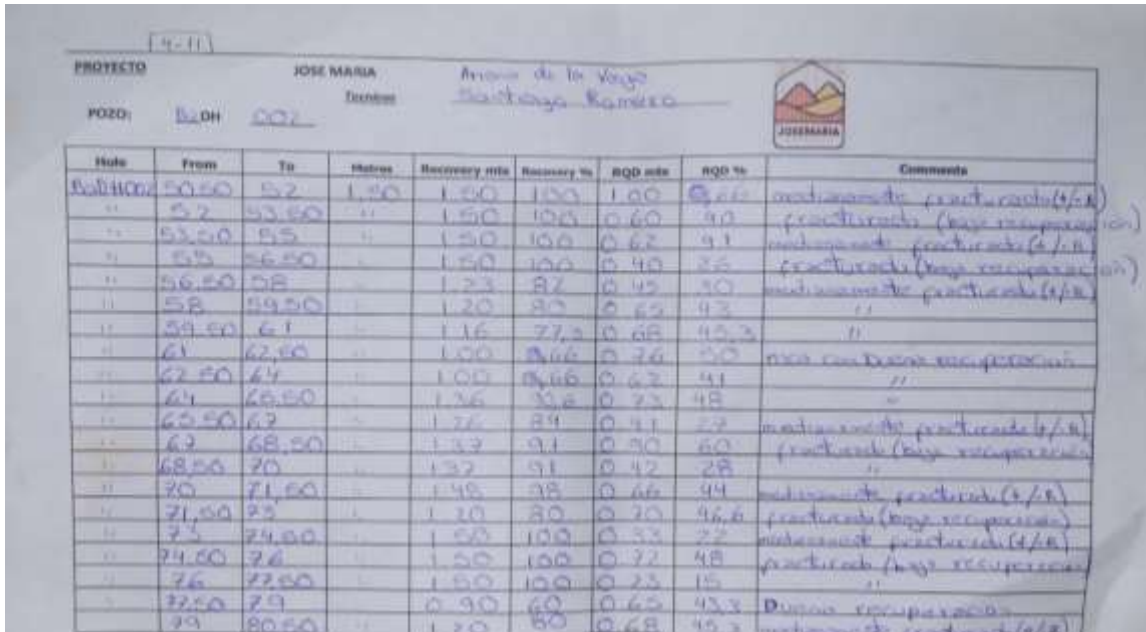 4-11
PROYECTO JOSE MARIA de la Vega
Tecnicos Santiago Romero
POZO: DH 002
JOSEMARIA
Hole From To Metros Recovery mts Recovery % RQD mts RQD % Comments
50.50 52 1,50 1.50 100 1.00 fracturado (+/-R)
" 52 53,50 " 1.50 100 0.60 fracturado (baja recuperación)
" 53,50 55 " 1.50 100 0.62 41 fracturado (+/-R)
" 55 56.50 " 1.50 100 0.40 26 fracturado (baja recuperación)
" 56,50 58 " 1.23 82 0.45 30 fracturado (+/-R)
" 58 59,50 " 1.20 80 0.65 43 "
" 59.50 61 " 1.16 77,3 0.68 45,3 "
" 61 62,50 " 1.00 0.76 50 roca con buena recuperación
" 62.50 64 " 1.00 0.62 41 "
" 64 65.50 " 1.36 0.73 48 "
" 65.50 67 " 1.26 84 0.41 27 fracturado (+/-R)
" 67 68,50 " 1.37 91 0.90 60 fracturado (baja recuperación
" 68,50 70 " 1.37 91 0.42 28 "
" 70 71,50 " 1.48 98 0.66 44 fracturado (+/-R)
" 71,50 73 " 1.20 80 0.70 46,6 fracturado (baja recuperación)
" 73 74,50 " 1.50 100 0.33 22 fracturado (+/-R)
" 74.50 76 " 1.50 100 0.72 48 fracturado (baja recuperación
" 76 77,50 " 1.50 100 0.23 15 "
" 77,50 79 " 0.90 60 0.65 43,3 Buena recuperación
" 79 80,50 " 1.20 80 0.68 45,3